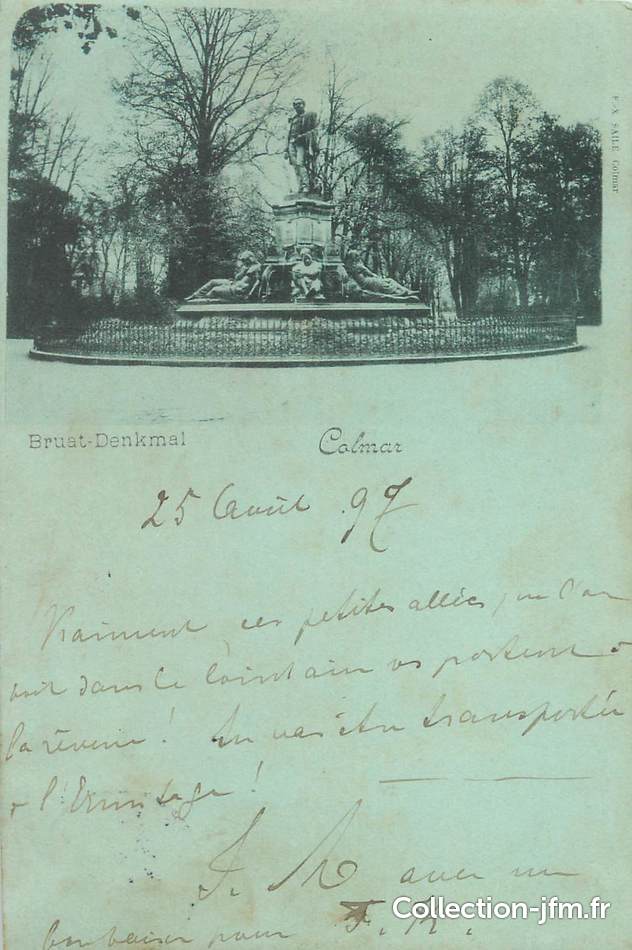 F. X. SAILE, Colmar
Bruat-Denkmal
Colmar
25 Août 97
Vraiment ces petites allées, que l'on
voit dans le lointain vs portent à
la rêverie! Tu vas être transportée
à l'Ermitage!
J. M avec un
bon baiser pour F. R.
Collection-jfm.fr